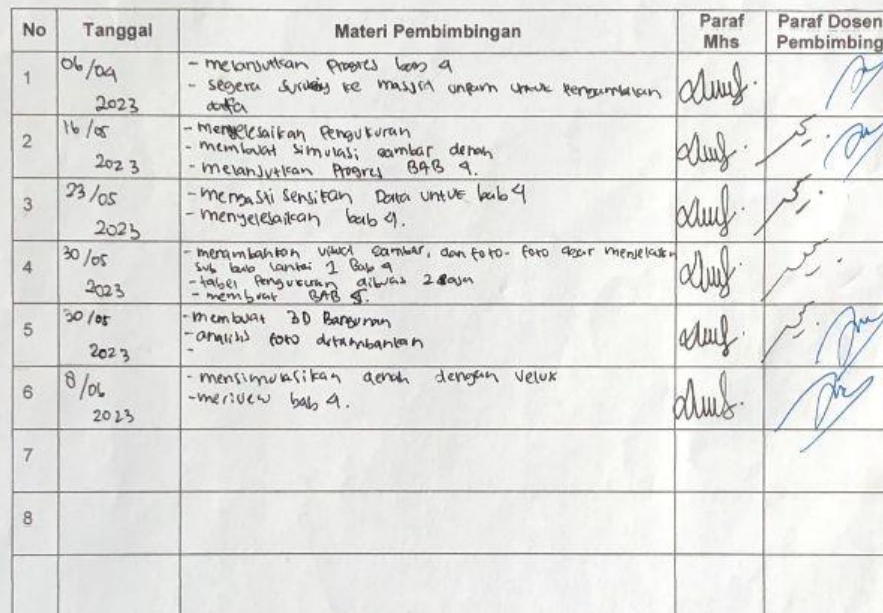 No Tanggal Materi Pembimbingan Paraf Mhs Paraf Dosen Pembimbing
1 06/04 2023
- melanjutkan Progres bab 4
- segera ke masjid unpam untuk pengambilan
data
2 16/05 2023
- menyelesaikan Pengukuran
- membuat simulasi gambar denah
- melanjutkan Progres BAB 4.
3 23/05 2023
- Data untuk bab 4
- menyelesaikan bab 4.
4 30/05 2023
- menambahkan gambar, dan foto-foto agar
sub bab lantai 1 Bab 4
- tabel Pengukuran 2
- membuat BAB 5.
5 30/05 2023
- membuat 3D Bangunan
- analisis foto ditambahkan
-
6 8/06 2023
- mensimulasikan denah dengan velux
- meriview bab 4.
7
8